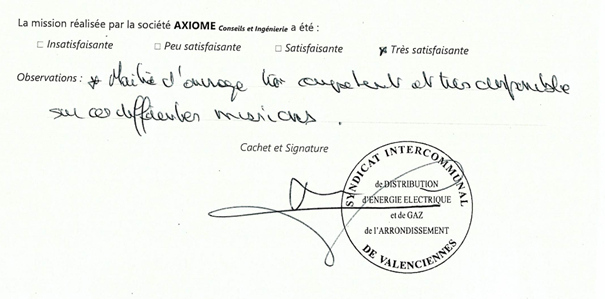 La mission réalisée par la société AXIOME Conseils et Ingénierie a été :
☐ Insatisfaisante ☐ Peu satisfaisante ☐ Satisfaisante ☒ Très satisfaisante
Observations : * Maîtrise d'ouvrage très compétent et très disponible
sur ces différentes missions .
Cachet et Signature
SYNDICAT INTERCOMMUNAL
de DISTRIBUTION
d'ENERGIE ELECTRIQUE
et de GAZ
de l'ARRONDISSEMENT
DE VALENCIENNES